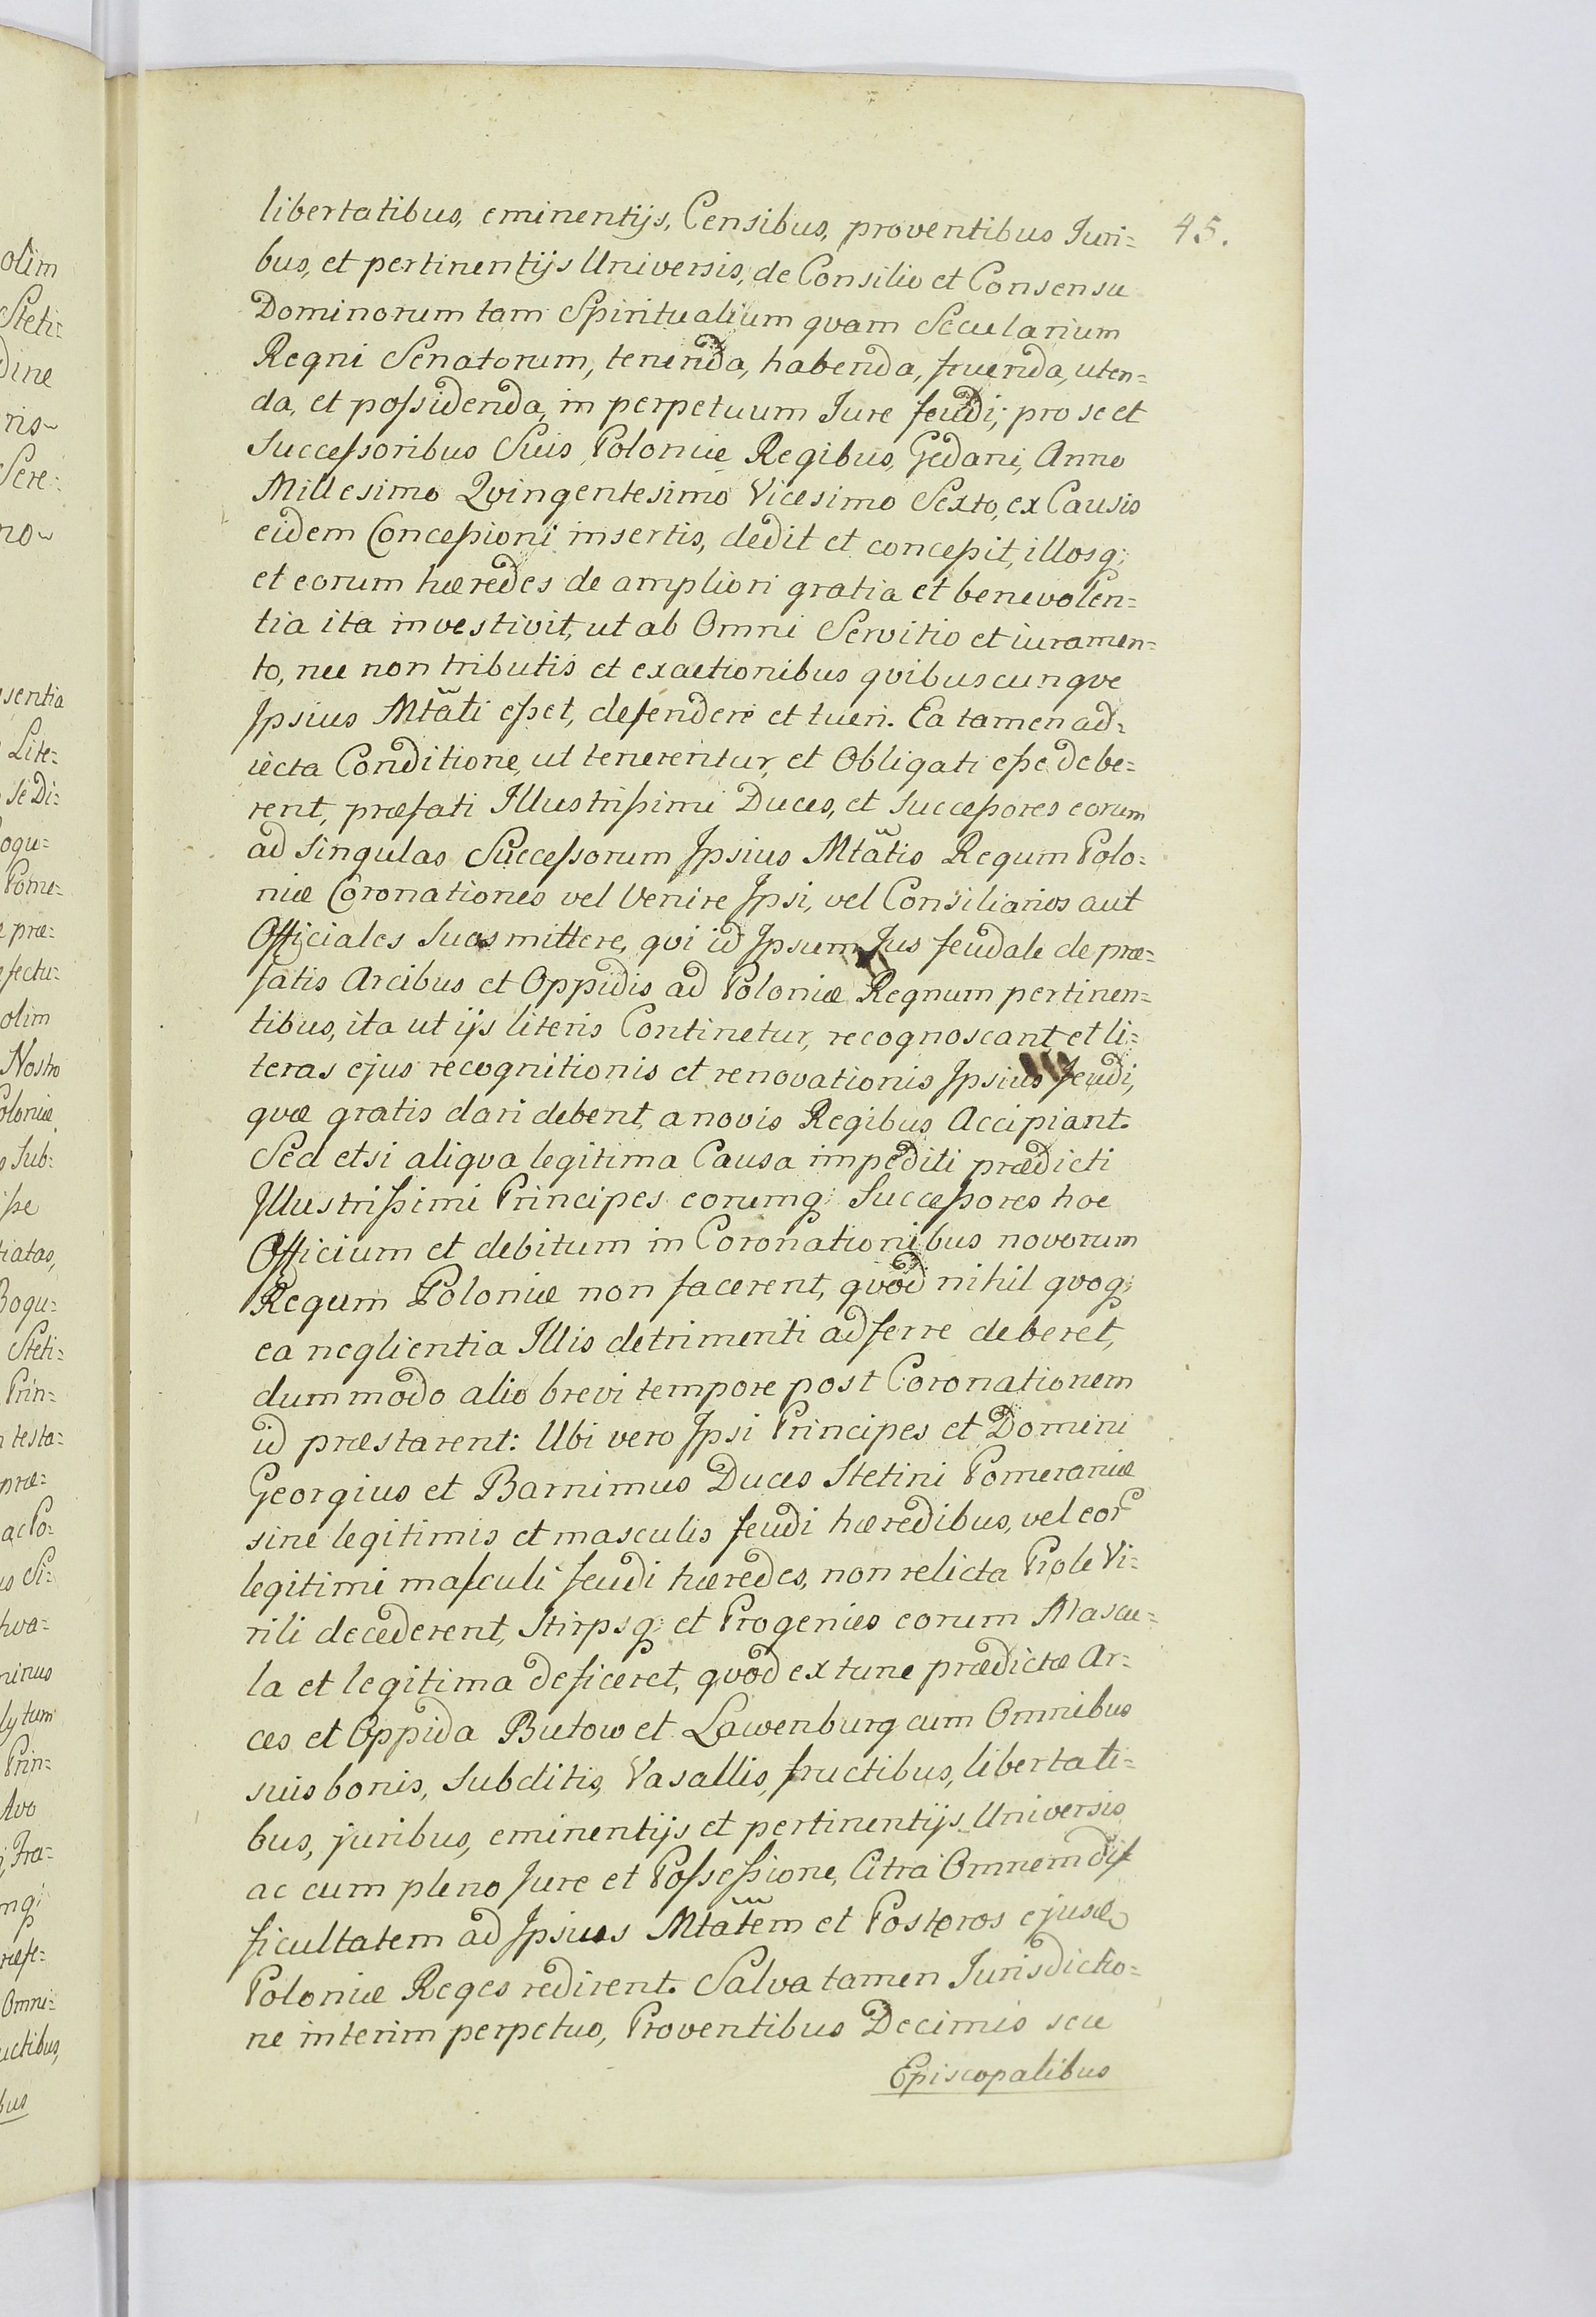 libertatibus, eminentijs, Censibus, proventibus Juri= 45.
bus, et pertinentijs Universis, de Consilio et Consensu
Dominorum tam Spiritualium qvam Secularium
Regni Senatorum, tenenda, habenda, fruenda, uten=
da, et poſsidenda, in perpetuum Jure feudi; pro se et
Succeſsoribus Suis Poloniæ Regibus, Gedani, Anno
Millesimo Qvingentesimo Vicesimo Sexto, ex Causis
eidem Conceßioni insertis, dedit et conceßit, illosq;
et eorum hæredes de ampliori gratia et benevolen=
tia ita investivit, ut ab Omni Servitio et iuramen=
to, nec non tributis et exactionibus qvibuscunqve
Ipsius Mtãti eßet, defendere et tueri. Ea tamen ad=
iecta Conditione, ut tenerentur, et Obligati eße debe=
rent, præfati Illustrißimi Duces, et Succeßores eorum
ad Singulas Succeſsorum Ipsius Mtãtis Regum Polo=
niæ Coronationes vel Venire Ipsi, vel Consiliarios aut
Officiales Suos mittere, qvi id Ipsum Jus feudale de præ=
fatis Arcibus et Oppidis ad Poloniæ Regnum pertinen=
tibus, ita ut ijs literis Continetur, recognoscant et li=
teras ejus recognitionis et renovationis Ipsius feudi,
qvæ gratis dari debent, a novis Regibus Accipiant.
Sed etsi aliqva legitima Causa impediti prædicti
Illustrißimi Principes eorumq; Succeßores hoc
Officium et debitum in Coronationibus novorum
Regum Poloniæ non facerent, qvod nihil qvoq;
ea neglientia Illis detrimenti adferre deberet,
dummodo alio brevi tempore post Coronationem
id præstarent: Ubi vero Ipsi Principes et Domini
Georgius et Barnimus Duces Stetini Pomeraniæ
sine legitimis et masculis feudi hæredibus, vel eor
legitimi maſculi feudi hæredes, non relicta Prole Vi=
rili decederent, Stirpsq; et Progenies eorum Mascu=
la et legitima deficeret, qvod ex tunc prædictæ Ar=
ces et Oppida Butow et Lawenburg cum Omnibus
suis bonis, Subditis, Vasallis, fructibus, libertati=
bus, juribus, eminentijs et pertinentijs Universis
ac cum pleno Jure et Poſseßione, Citra Omnem dif
ficultatem ad Ipsius Mtãtem et Posteros ejus
Poloniæ Reges redirent. Salva tamen Jurisdictio=
ne interim perpetuo, Proventibus Decimis seu
Episcopalibus
olim
Steti=
dine
ris
Sere=
no
sentia
Lite=
se Di=
ogu=
Pome=
præ=
fectu=
olim
Nostro
oloniæ
Sub=
iße
tiatas,
Bogu=
Steti=
Prin=
testa=
præ=
ac Po=
Si=
hva=
minus
lytum
Prin=
Avo
Fra=
mq;
ræfe=
Omni=
uctibus,
bus